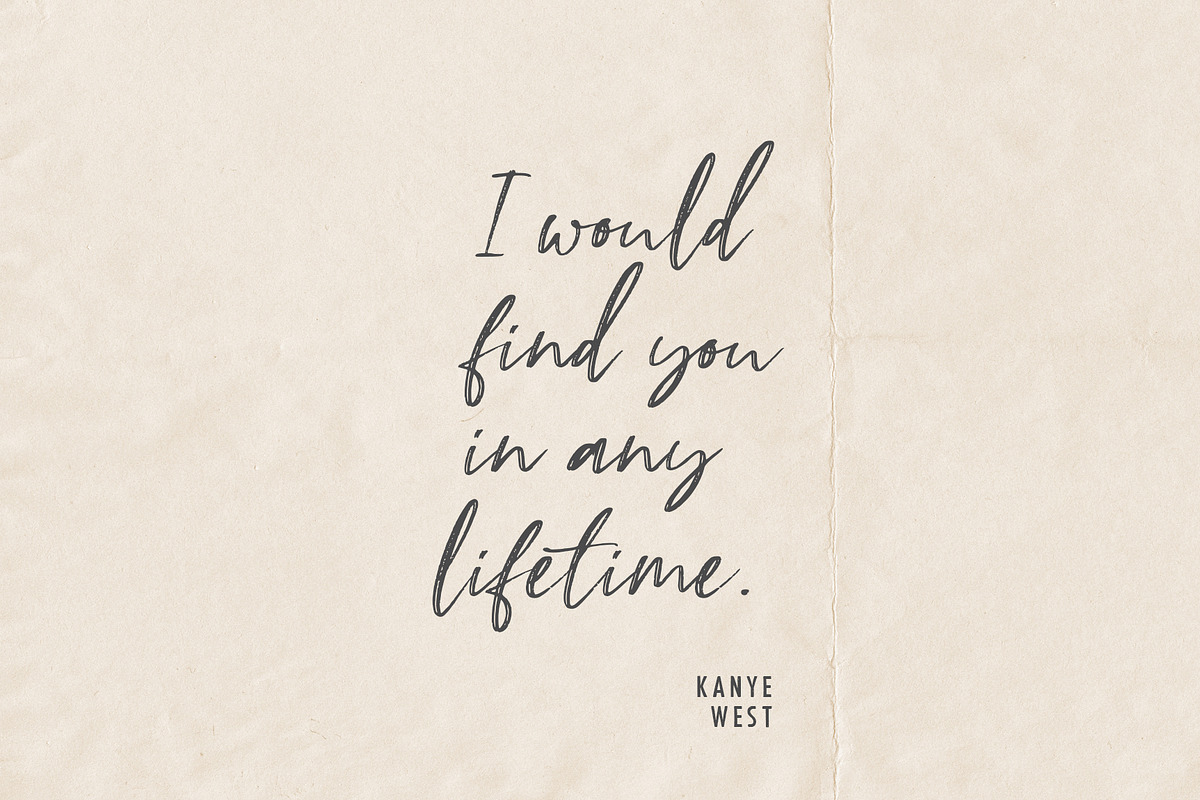 I would
find you
in any
lifetime.
KANYE
WEST